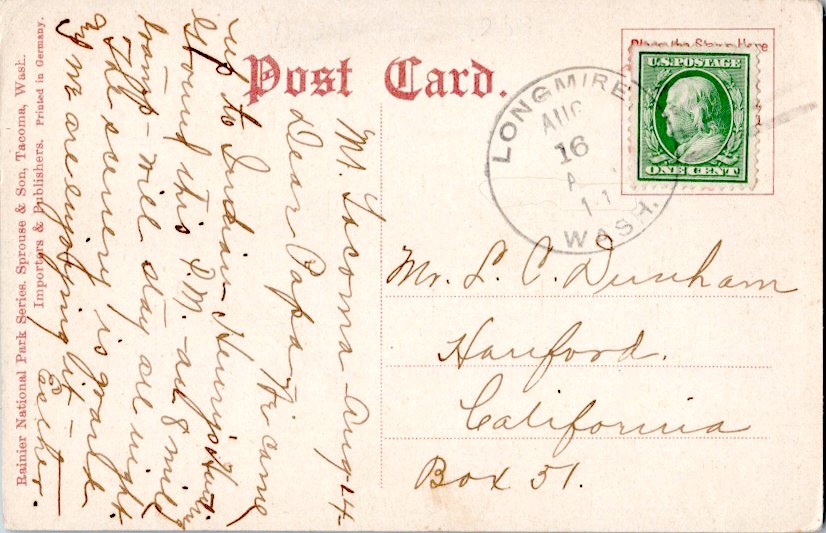 Post Card.
Place the Stamp Here
U.S. POSTAGE
ONE CENT
LONGMIRE
AUG
16
A
11
WASH.
Mt. Tacoma Aug-14-
Dear Papa, We came
up to Indian Henry's Hunting
Ground this P.M. - an 8 mile
tramp - will stay all night.
The scenery is grand
and we are enjoying it -
Esther.
Mr. L. C. Dunham
Hanford.
California
Box 51.
Rainier National Park Series. Sprouse & Son, Tacoma, Wash.
Importers & Publishers. Printed in Germany.